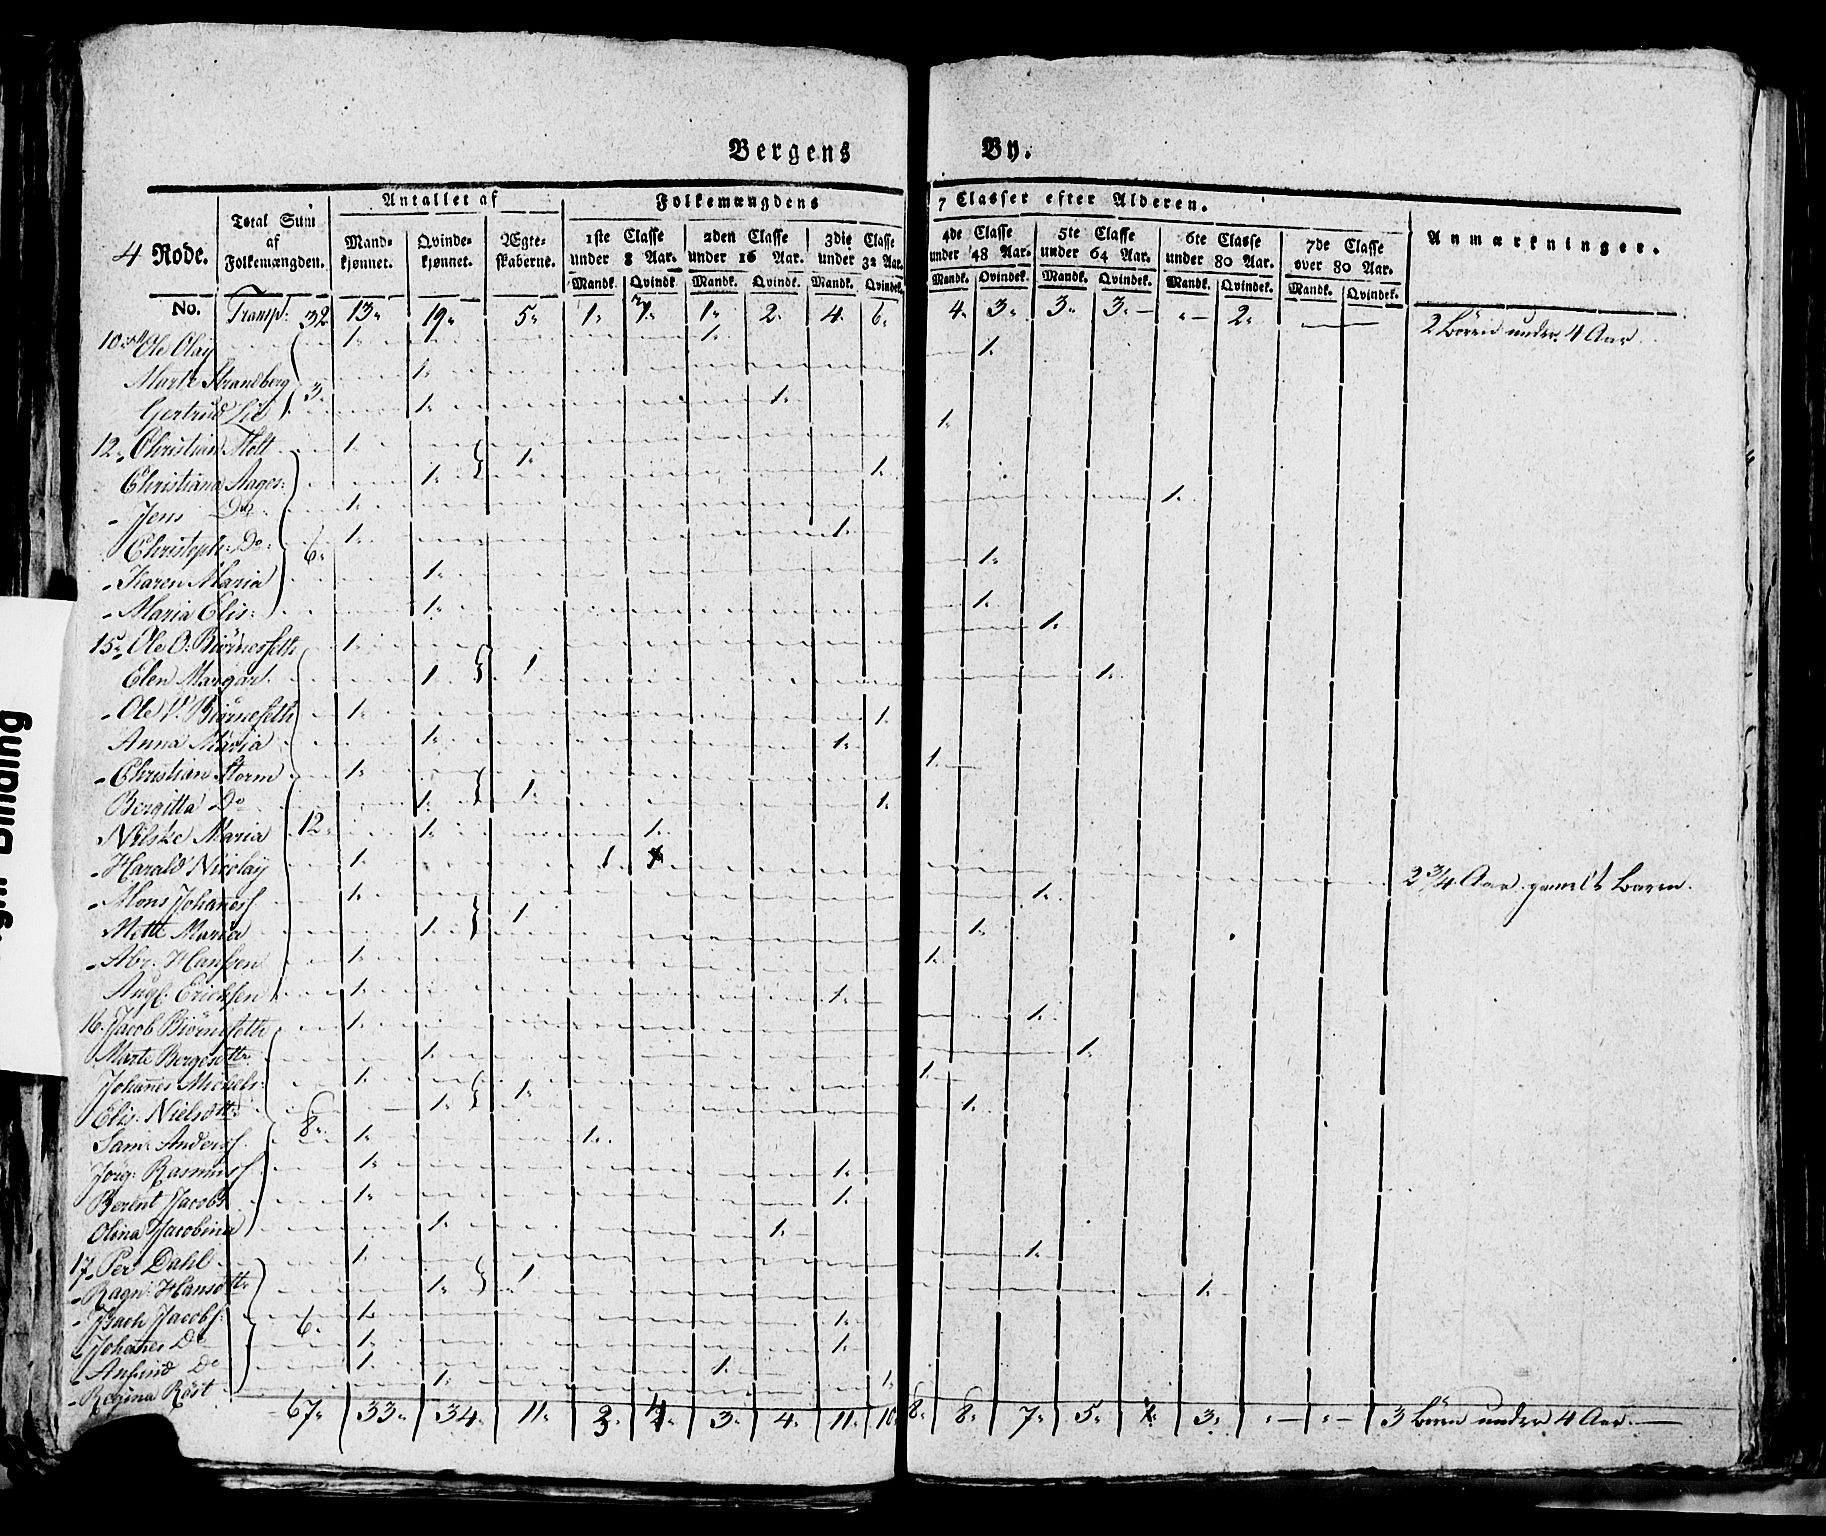 Bergens By.
4 Rode. Total Sum af Folkemængden. Antallet af Folkemængdens 7 Classer efter Alderen. Anmærkninger.
Mand-kjønnet. Qvinde-kjønnet. Ægte-skaberne. 1ste Classe under 8 Aar. 2den Classe under 16 Aar. 3die Classe under 32 Aar. 4de Classe under 48 Aar. 5te Classe under 64 Aar. 6te Classe under 80 Aar. 7de Classe over 80 Aar.
Mandk. Qvindk. Mandk. Qvindk. Mandk. Qvindek. Mandk. Qvindek. Mandk. Qvindek. Mandk. Qvindek. Mandk. Qvindek.
No. Transp: 32 13 19 5 1 1 2 4 6 4 3 3 3 - 2 - 2 Børn under 4 Aar
10 Ole Olay 1 1
Marte Strandberg 3 1 1
Gertrud Lie 1 1
12 Christian Holt 1 1 1
Christiana Aages: 1 1
Jens Do 1 1
Christoph: Do 6 1 1
Karen Maria 1 1
Maria Elis: 1 1
15 Ole O: Biørnesseth 1 1
Elen Margar! 1 1 1
Ole V: Biørneseth 1 1
Anna Maria 1 1
Christian Storm 1 1
Bergitta Do 1 1 1
Nilske Maria 12 1 1
Harald Nicolay 1 1 2 3/4 Aar gamelt Barn
Mons Johans 1 1
Mette Maria 1 1 1
Abr: Hansen 1 1
Aug: Ericksen 1 1
16 Jacob Biørneseth 1 1
Marte Bergesottr 1 1
Johannes Mickels: 1 1
Elis: Nielsottr 1 1 1
Sam: Anders 8 1 1
Jørg: Rasmus 1 1
Berent Jacobs 1 1
Olina Jacobina 1 1
17 Per Dahl 1 1
Ragn: Hansottr 1 1 1
Jacobs: 1 1
Johannes Do 6 1 1
Do 1 1
Regina Røst 1 1
67 33 34 11 3 4 3 4 11 10 8 8 7 5 3 - - 3 Børn under 4 Aar.
Binding